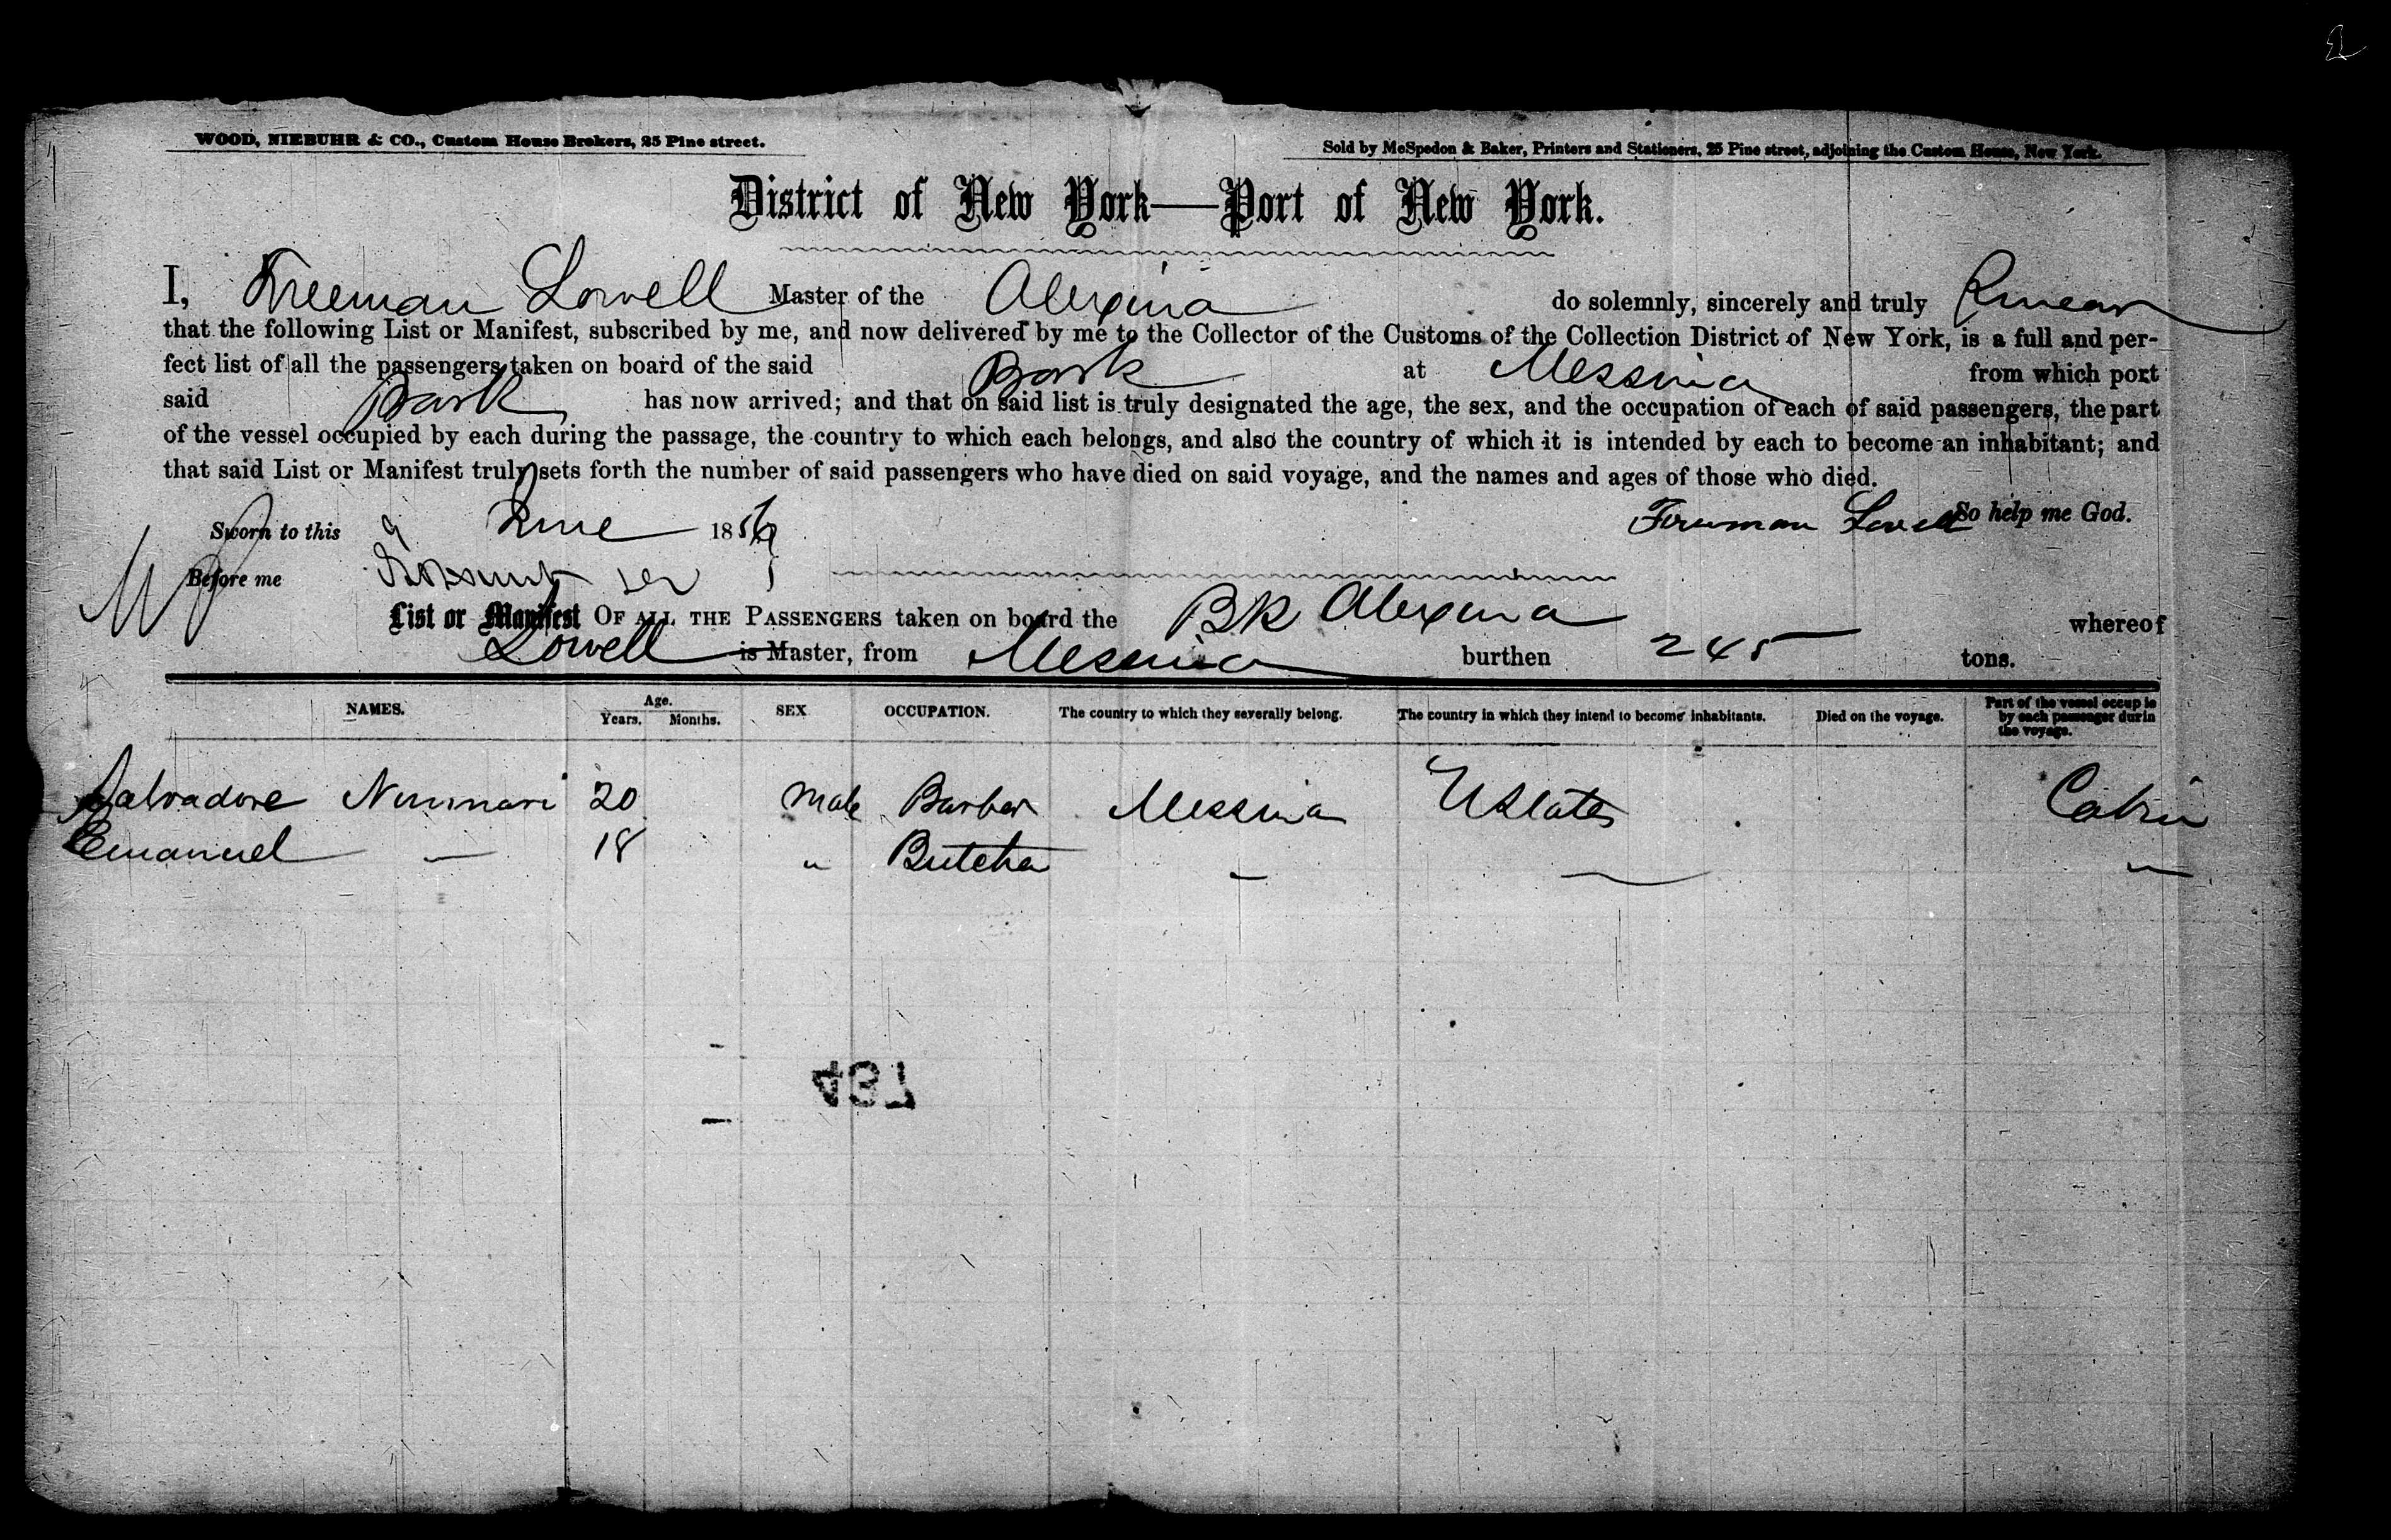 WOOD, NIEBUHR & CO., Custom House Brokers, 25 Pine street.
Sold by McSpedon & Baker, Printers and Stationers, 25 Pine street, adjoining the Custom House, New York.
District of New York—Port of New York.
I, Freeman Lowell Master of the Alexina do solemnly, sincerely and truly swear
that the following List or Manifest, subscribed by me, and now delivered by me to the Collector of the Customs of the Collection District of New York, is a full and per-
fect list of all the passengers taken on board of the said Bark at Messina from which port
said Bark has now arrived; and that on said list is truly designated the age, the sex, and the occupation of each of said passengers, the part
of the vessel occupied by each during the passage, the country to which each belongs, and also the country of which it is intended by each to become an inhabitant; and
that said List or Manifest truly sets forth the number of said passengers who have died on said voyage, and the names and ages of those who died.
So help me God.
Sworn to this 9 June 1856 Freeman Lowell
Before me
List or Manifest OF ALL THE PASSENGERS taken on board the Bk Alexina whereof
Lowell is Master, from Messina burthen 245 tons.
NAMES. Age. Years. Months. SEX OCCUPATION. The country to which they severally belong. The country in which they intend to become inhabitants. Died on the voyage. Part of the vessel occupie by each passenger durin the voyage.
Salvadore Nunnari 20 Male Barber Messina UStates Cabin
Emanuel — 18 " Butcher — — "
437